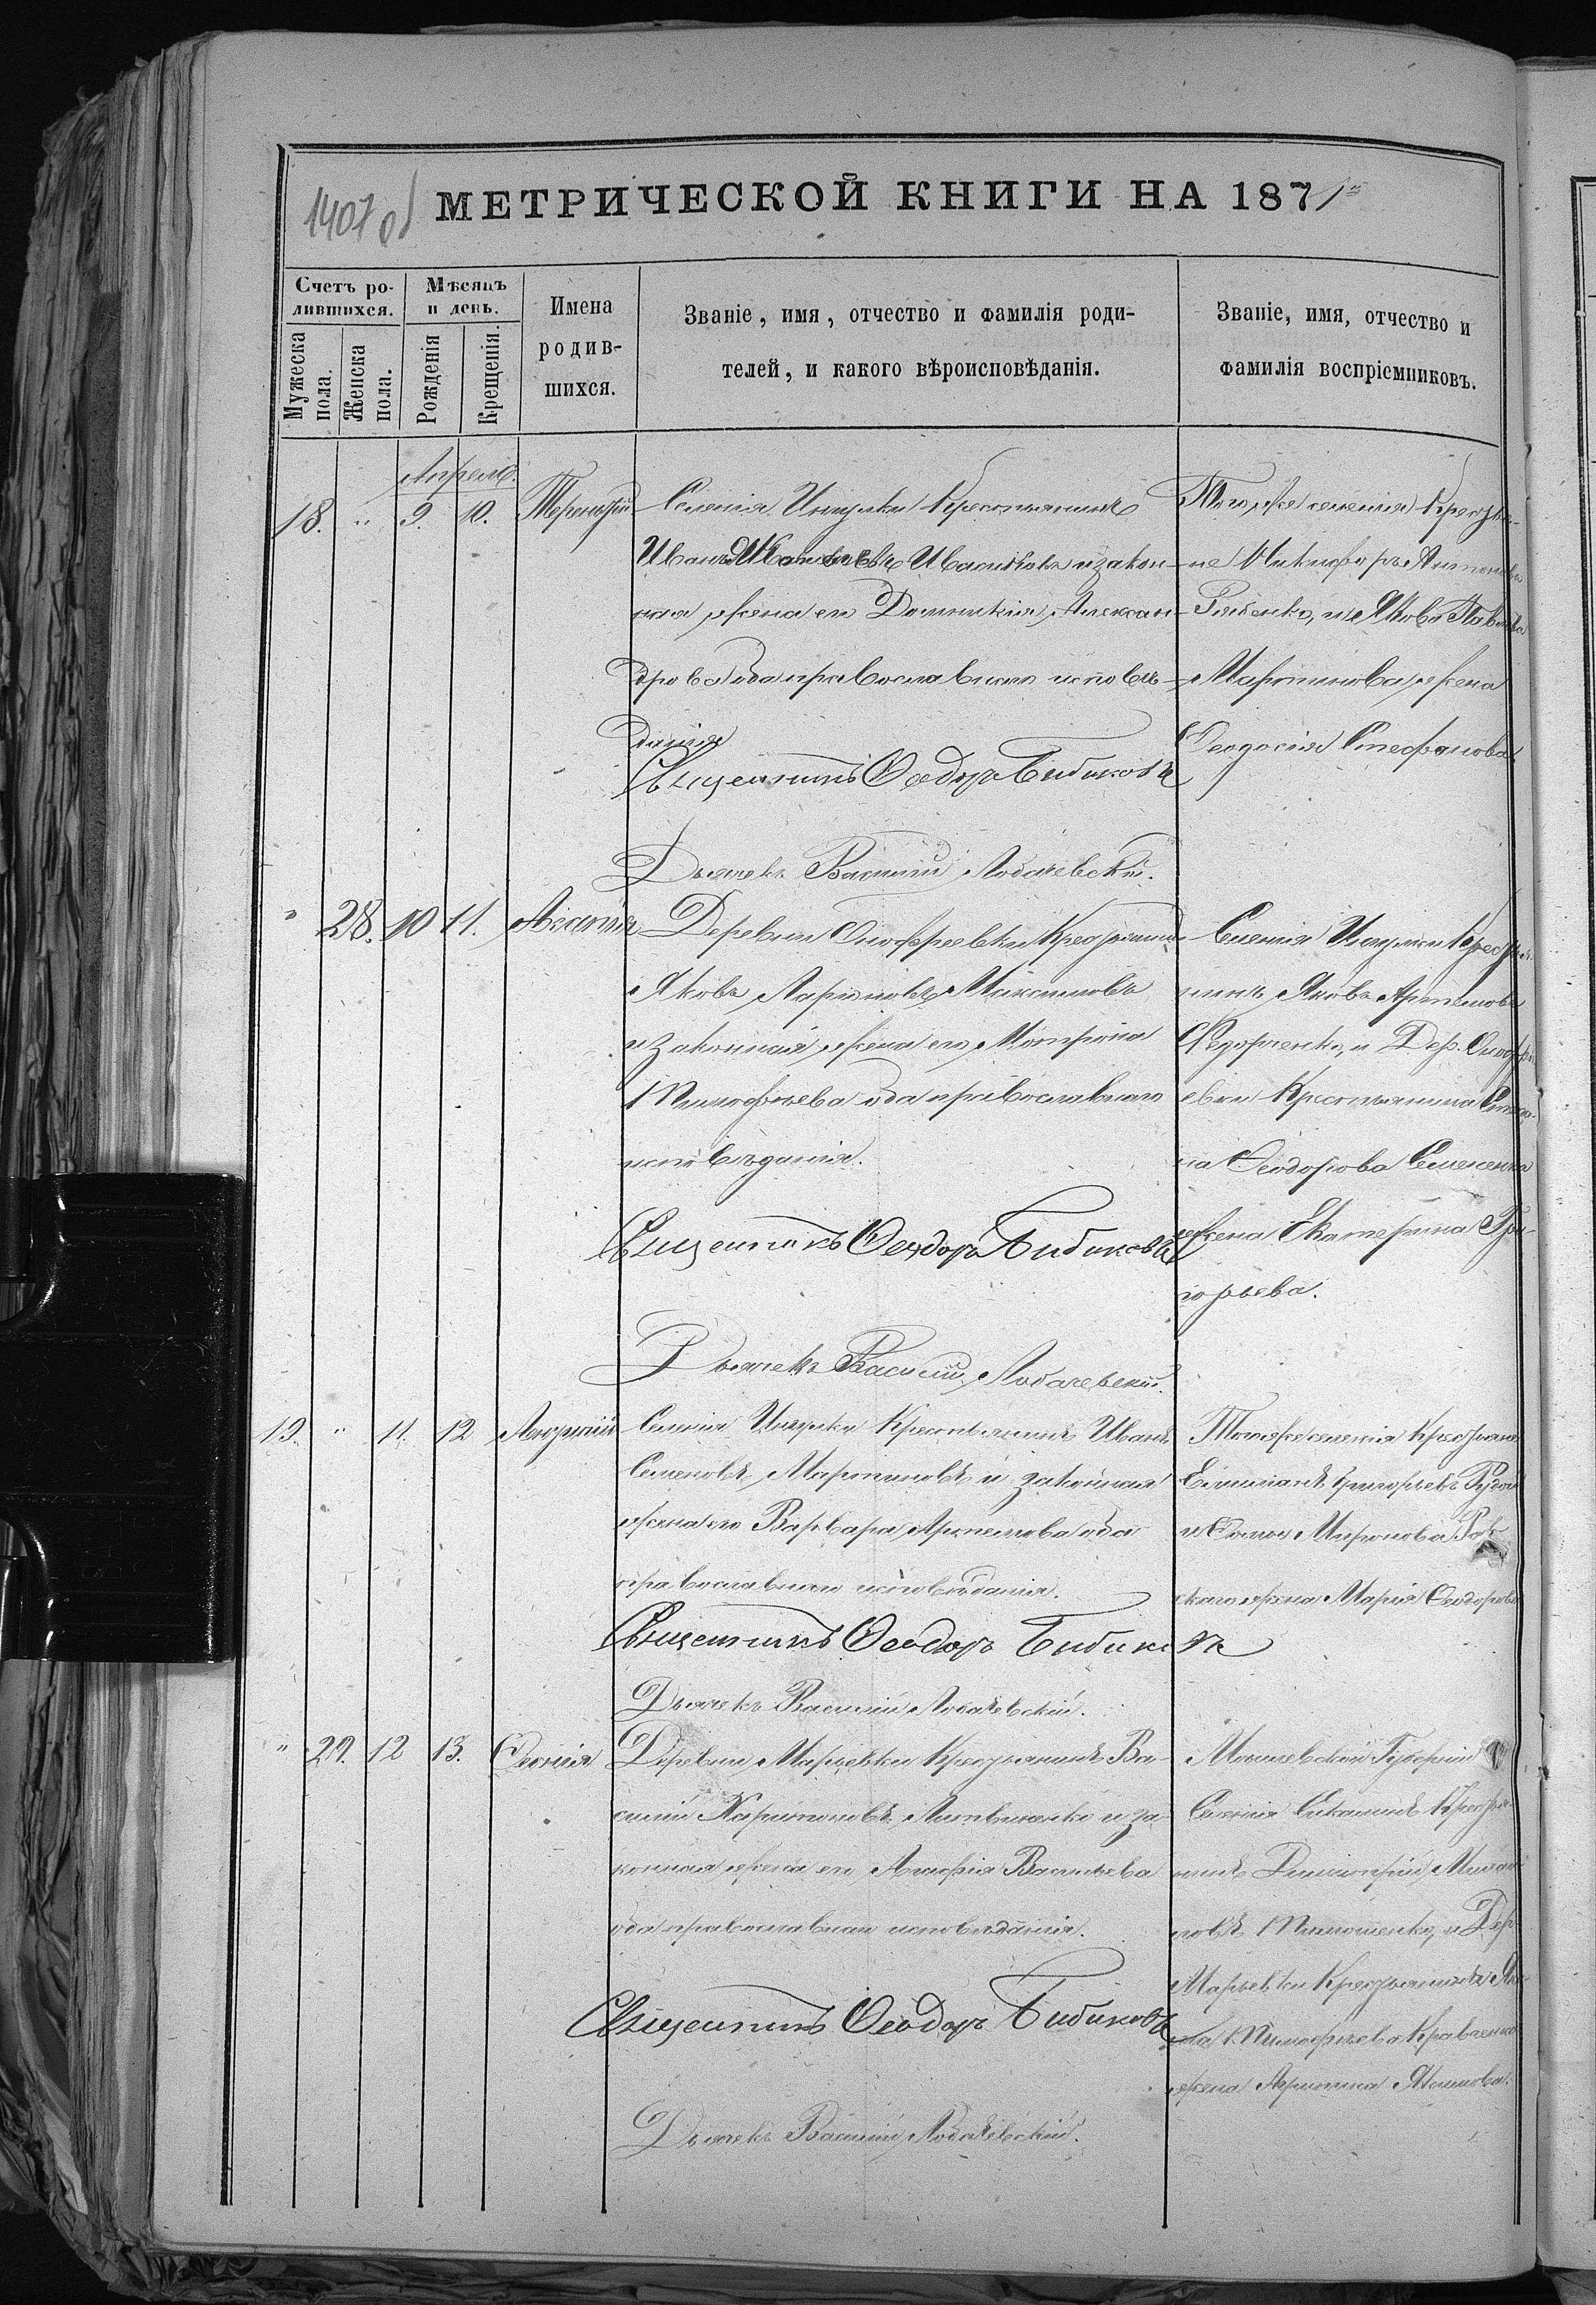 1407 об
МЕТРИЧЕСКОЙ КНИГИ НА 1871
Счетъ ро-
дившихся.
Мужеска
пола.
Женска
пола.
Мѣсяцъ
и день.
Рожденія
Крещенія.
Имена
родив-
шихся.
Званіе, имя, отчество и фамилія роди-
телей, и какого вѣроисповѣданія.
Званіе, имя, отчество и
фамилія воспріемниковъ.
Апрель.
18. " 9. 10. Терентій
Селенія Ингулки Крестьянинъ
Иванъ Ивасиковъ и закон-
ная жена его Домникія Алексан-
дрова оба православнаго исповѣ-
данія
Священникъ Ѳеодоръ Бибиковъ
Дьячекъ Василій Лобачевскій.
Того же селенія Крестья-
не Никифоръ Антоновъ
Рябенко, и Якова Павлова
Мартинова жена
Ѳеодосія Стефанова
" 28. 10 11. Агафія
Деревни Онофреевки Крестьянинъ
Яковъ Ларіоновъ Максимовъ
и законная жена его Матрона
Тимофѣева оба православнаго
исповѣданія.
Священникъ Ѳеодоръ Бибиковъ
Дьячекъ Василій Лобачевскій.
Селенія Ингулки Крестья-
нинъ Яковъ Артемовъ
Ѳедорченко, и Дер. Онофре-
евки Крестьянина
на Ѳеодорова Семененка
жена Екатерина Гри-
горьева.
19. " 11. 12
Селенія Ингулки Крестьянинъ Иванъ
Семеновъ Мартиновъ и законная
жена его Варвара Артемова оба
православнаго исповѣданія.
Священникъ Ѳеодоръ Бибиковъ
Дьячекъ Василій Лобачевскій.
Того же селенія Крестьяне
Емиліанъ Григорьевъ
и Ѳомы Миронова
скаго жена Марія Ѳеодорова
" 29. 12 13. Ѳеонія
Деревни Марьевки Крестьянинъ Ва-
силій Харитоновъ Литвиненко и за-
конная жена его Агафія Васильева
оба православнаго исповѣданія.
Священникъ Ѳеодоръ Бибиковъ
Дьячекъ Василій Лобачевскій.
Могилевской Губерніи
Селенія Крестья-
нинъ Димитрій
новъ Тимошенко, и Дер
Марьевки Крестьянина
Тимофѣева Кравченка
жена Акимова.